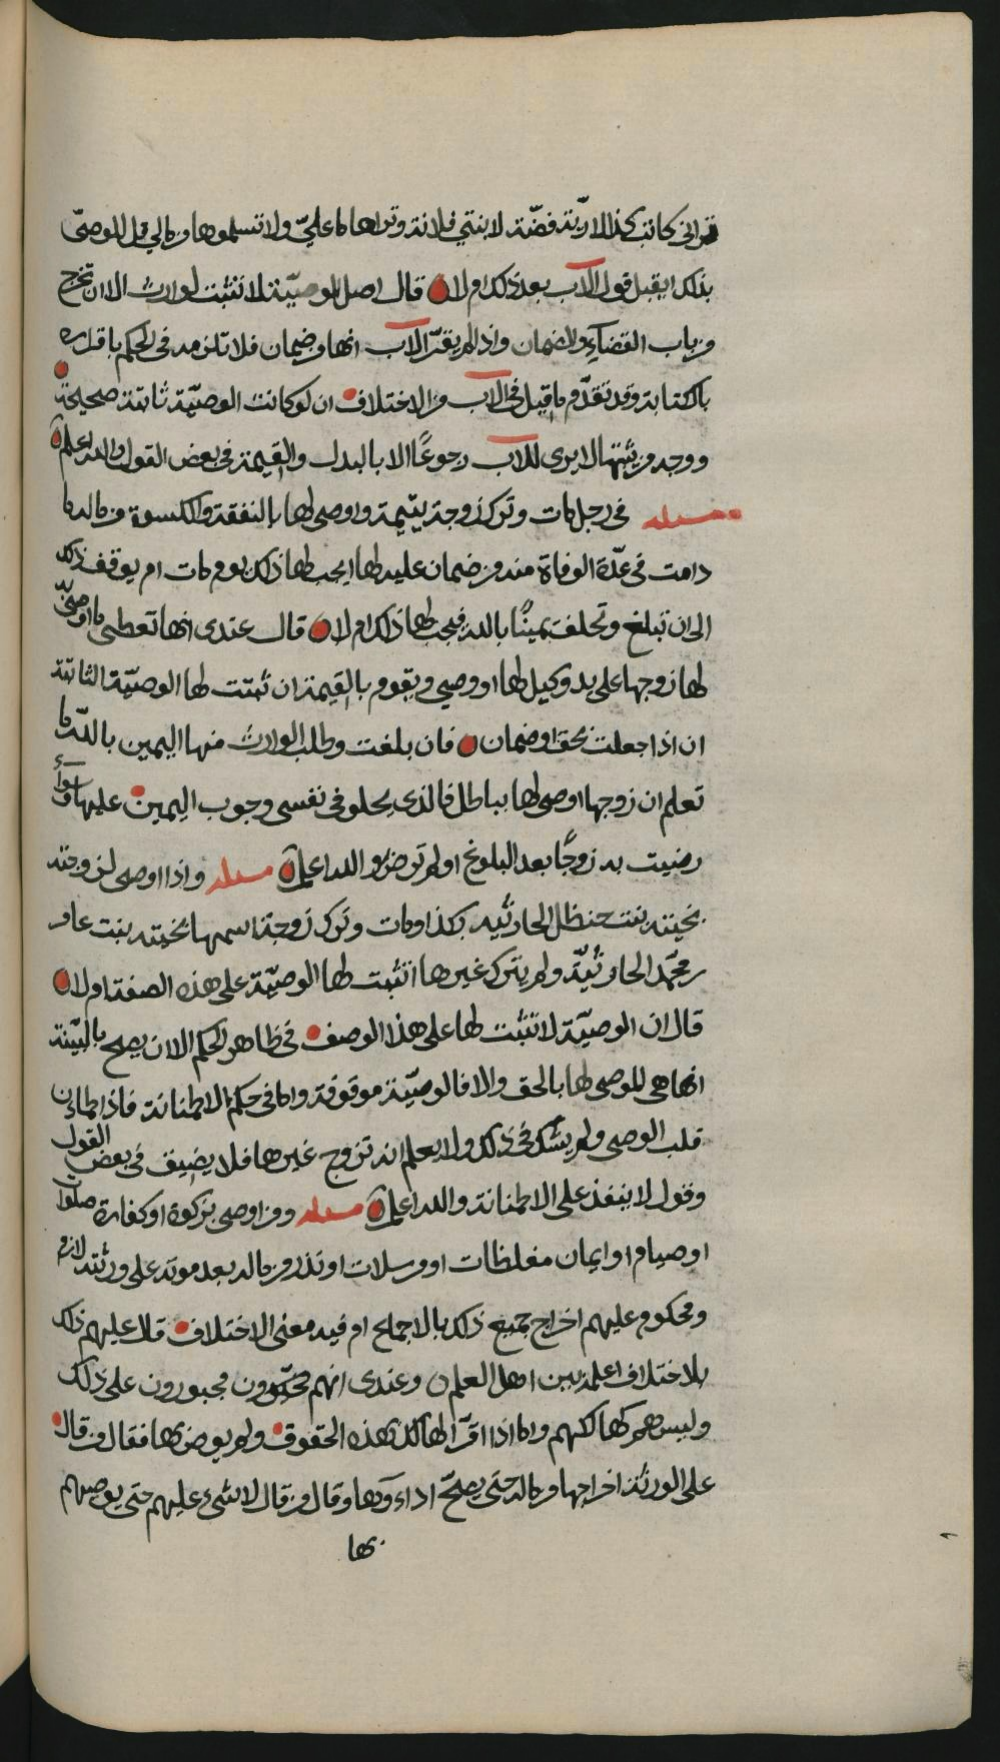 قراني كاتب كذا لاريّة فضّة لابنتي فلانة وتراها ما عليّ ولا تسلموها من مالي قبل للوصيّ
بذلك ايقبل قول الاب بعد ذلك ام لا قال اصل الوصيّة لا تثبت لوارث الا ان تخرج
من باب القضاء والضمان واذا لم يقرّ الاب انها من ضمان فلا تلزمه في الحكم باقراره
بالكتابة وقد تقدّم ما قيل في الاب من الاختلاف ان لو كانت الوصيّة ثابتة صحيحة
ووجه من يثبتها لا يرى للاب رجوعًا الا بالبدل والقيمة في بعض القول والله اعلم
مسئله في رجل مات وترك زوجة يتيمة واوصى لها بالنفقة والكسوة من ماله ما
دامت في عدّة الوفاة منه من ضمان عليه لها ايجب لها ذلك يوم مات ام يوقف ذلك
الى ان تبلغ وتحلف يمينًا بالله فيجب لها ذلك ام لا قال عندى انها تعطى ما اوصىّ
لها زوجها على يد وكيل لها او وصي ويقوم بالقيمة ان ثبتت لها الوصيّة الثابتة
ان اذا جعلت بحق او ضمان فان بلغت وطلب الوارث منها اليمين بالله ما
تعلم ان زوجها اوصى لها بباطل فالذى يحلو في نفسى وجوب اليمين عليها سواء
رضيت به زوجًا بعد البلوغ او لم ترض والله اعلم مسئله واذا اوصى لزوجته
بخيته بنت حنظل الحارثيه بكذا ومات وترك زوجة اسمها بخيته بنت عامر
بن محمّد الحارثيّة ولم يترك غيرها اتثبت لها الوصيّة على هذه الصفة ام لا
قال ان الوصيّة لا تثبت لها على هذا الوصف في ظاهر الحكم الا ان يصح بالبيّنة
انها هي للموصى لها بالحق والا فالوصيّة موقوفة واما في حكم الاطمئنانة فاذا اطمان
قلب الوصي ولم يشك في ذلك ولا يعلم انه تزوج غيرها فلا يضيق في بعض القول
وقول لا ينفذ على الاطمئنانة والله اعلم مسئله ومن اوصى بزكوة او كفارة صلوا
او صيام او ايمان مغلظات او مرسلات او نذر من ماله بعد موته على ورثته لازم
ومحكوم عليهم اخراج جميع ذلك بالاجماع ام فيه معنى الاختلاف قال عليهم ذلك
بلا اختلاف اعلمه بين اهل العلم وعندى انهم مجبورون على ذلك
وليس همر كهالكهم واما اذا اقرّ الهالك بهذه الحقوق ولم يوص بها فقال من قال
على الورثة اخراجها من ماله حتى يصحّ اداءوها وقال من قال لا شيء عليهم حتى يوصيهم
بها